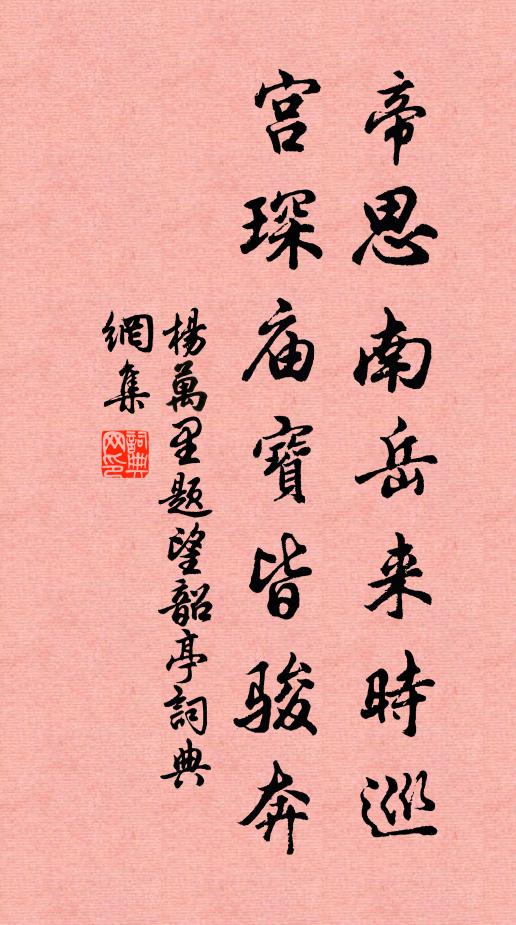 帝思南岳来時巡
宫琛庙寶皆駿奔
楊萬里题望韶亭詞典
網集
詞典
网印